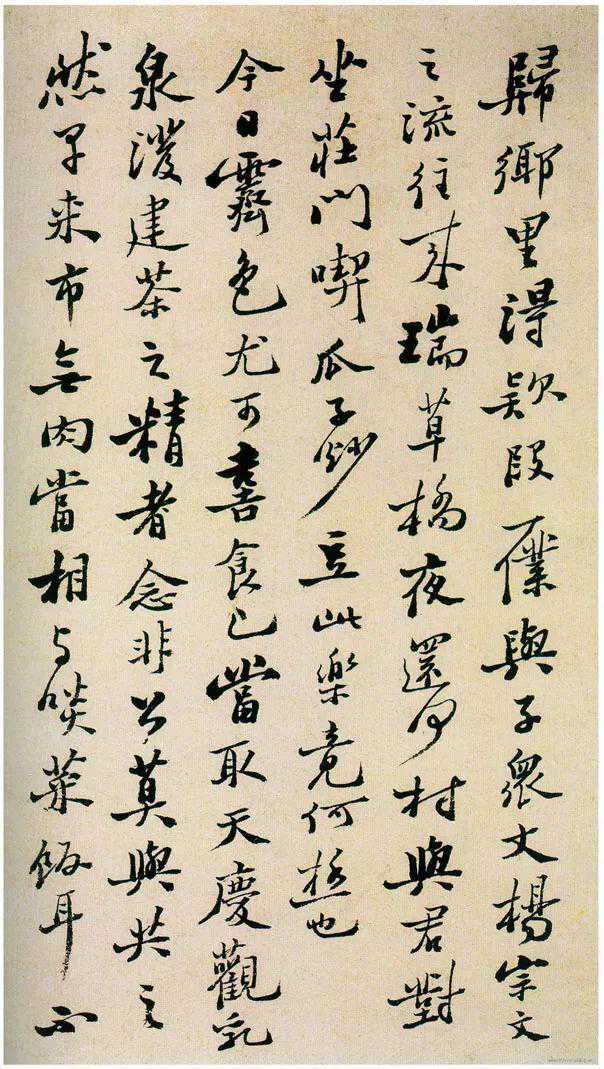 歸鄉里得款段一僕與子衆丈楊宗文
之流往來瑞草橋夜還何村與君對
坐莊門喫瓜子炒豆此樂竟何極也
今日霽色尤可喜食已當取天慶觀乳
泉潑建茶之精者念非公莫與共之
然早来市無肉當相與啖菜飯耳不